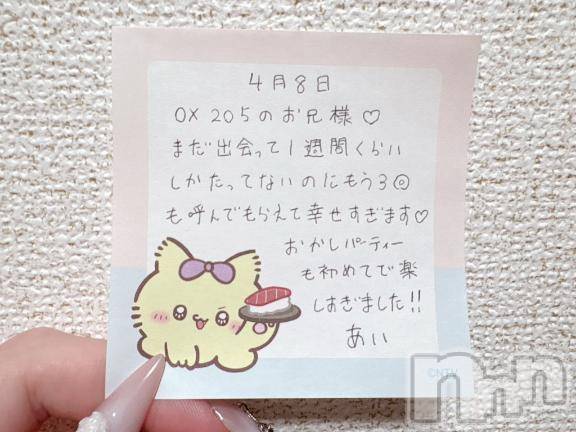 4月8日
OX 205のお兄様♡
まだ出会って1週間くらい
しかたってないのにもう3◎
も呼んでもらえて幸せすぎます♡
おかしパーティー
も初めてで楽
しすぎました!!
あい
©NTV